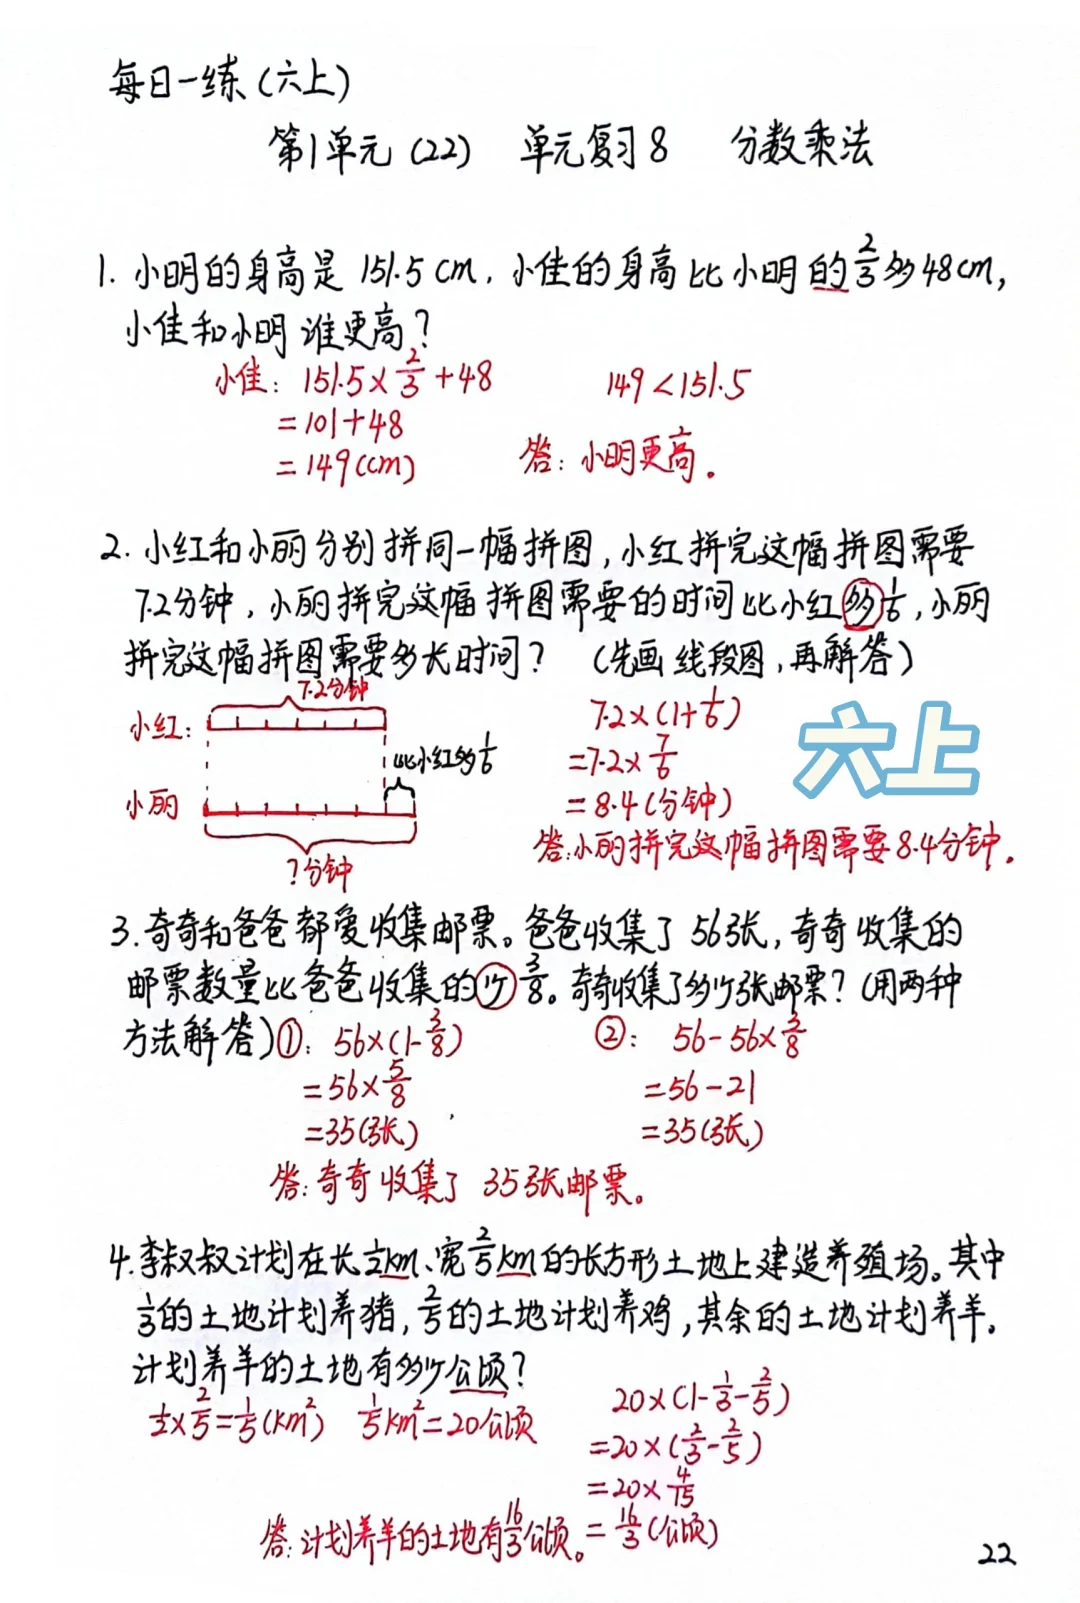 每日一练(六上)
第1单元(22) 单元复习8 分数乘法
1. 小明的身高是 151.5cm, 小佳的身高比小明的2/3多48cm,
小佳和小明谁更高?
小佳: 151.5×2/3+48 149<151.5
=101+48
=149(cm) 答: 小明更高.
2. 小红和小丽分别拼同一幅拼图,小红拼完这幅拼图需要
7.2分钟, 小丽拼完这幅拼图需要的时间比小红多1/6, 小丽
拼完这幅拼图需要多长时间? (先画线段图,再解答)
7.2分钟
小红:
比小红多1/6
小丽
?分钟
7.2×(1+1/6)
=7.2×7/6
=8.4(分钟)
六上
答:小丽拼完这幅拼图需要8.4分钟.
3. 奇奇和爸爸都爱收集邮票。爸爸收集了56张, 奇奇收集的
邮票数量比爸爸收集的少3/8。奇奇收集了多少张邮票?(用两种
方法解答)①: 56×(1-3/8) ②: 56-56×3/8
=56×5/8 =56-21
=35(张) =35(张)
答: 奇奇收集了35张邮票。
4. 李叔叔计划在长1/2km、宽2/5km的长方形土地上建造养殖场。其中
1/3的土地计划养猪, 2/5的土地计划养鸡,其余的土地计划养羊。
计划养羊的土地有多少公顷?
1/2×2/5=1/5(km²) 1/5km²=20公顷 20×(1-1/3-2/5)
=20×(2/3-2/5)
=20×4/15
答:计划养羊的土地有16/3公顷。 =16/3(公顷)
22